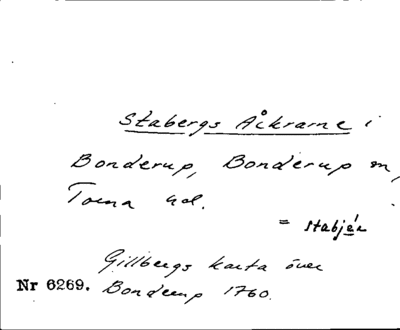 Stabergs Åckrarne i
Bonderup, Bonderup sn,
Torna hd.
= stabjär
Gillbergs karta över
Nr 6269. Bonderup 1760.